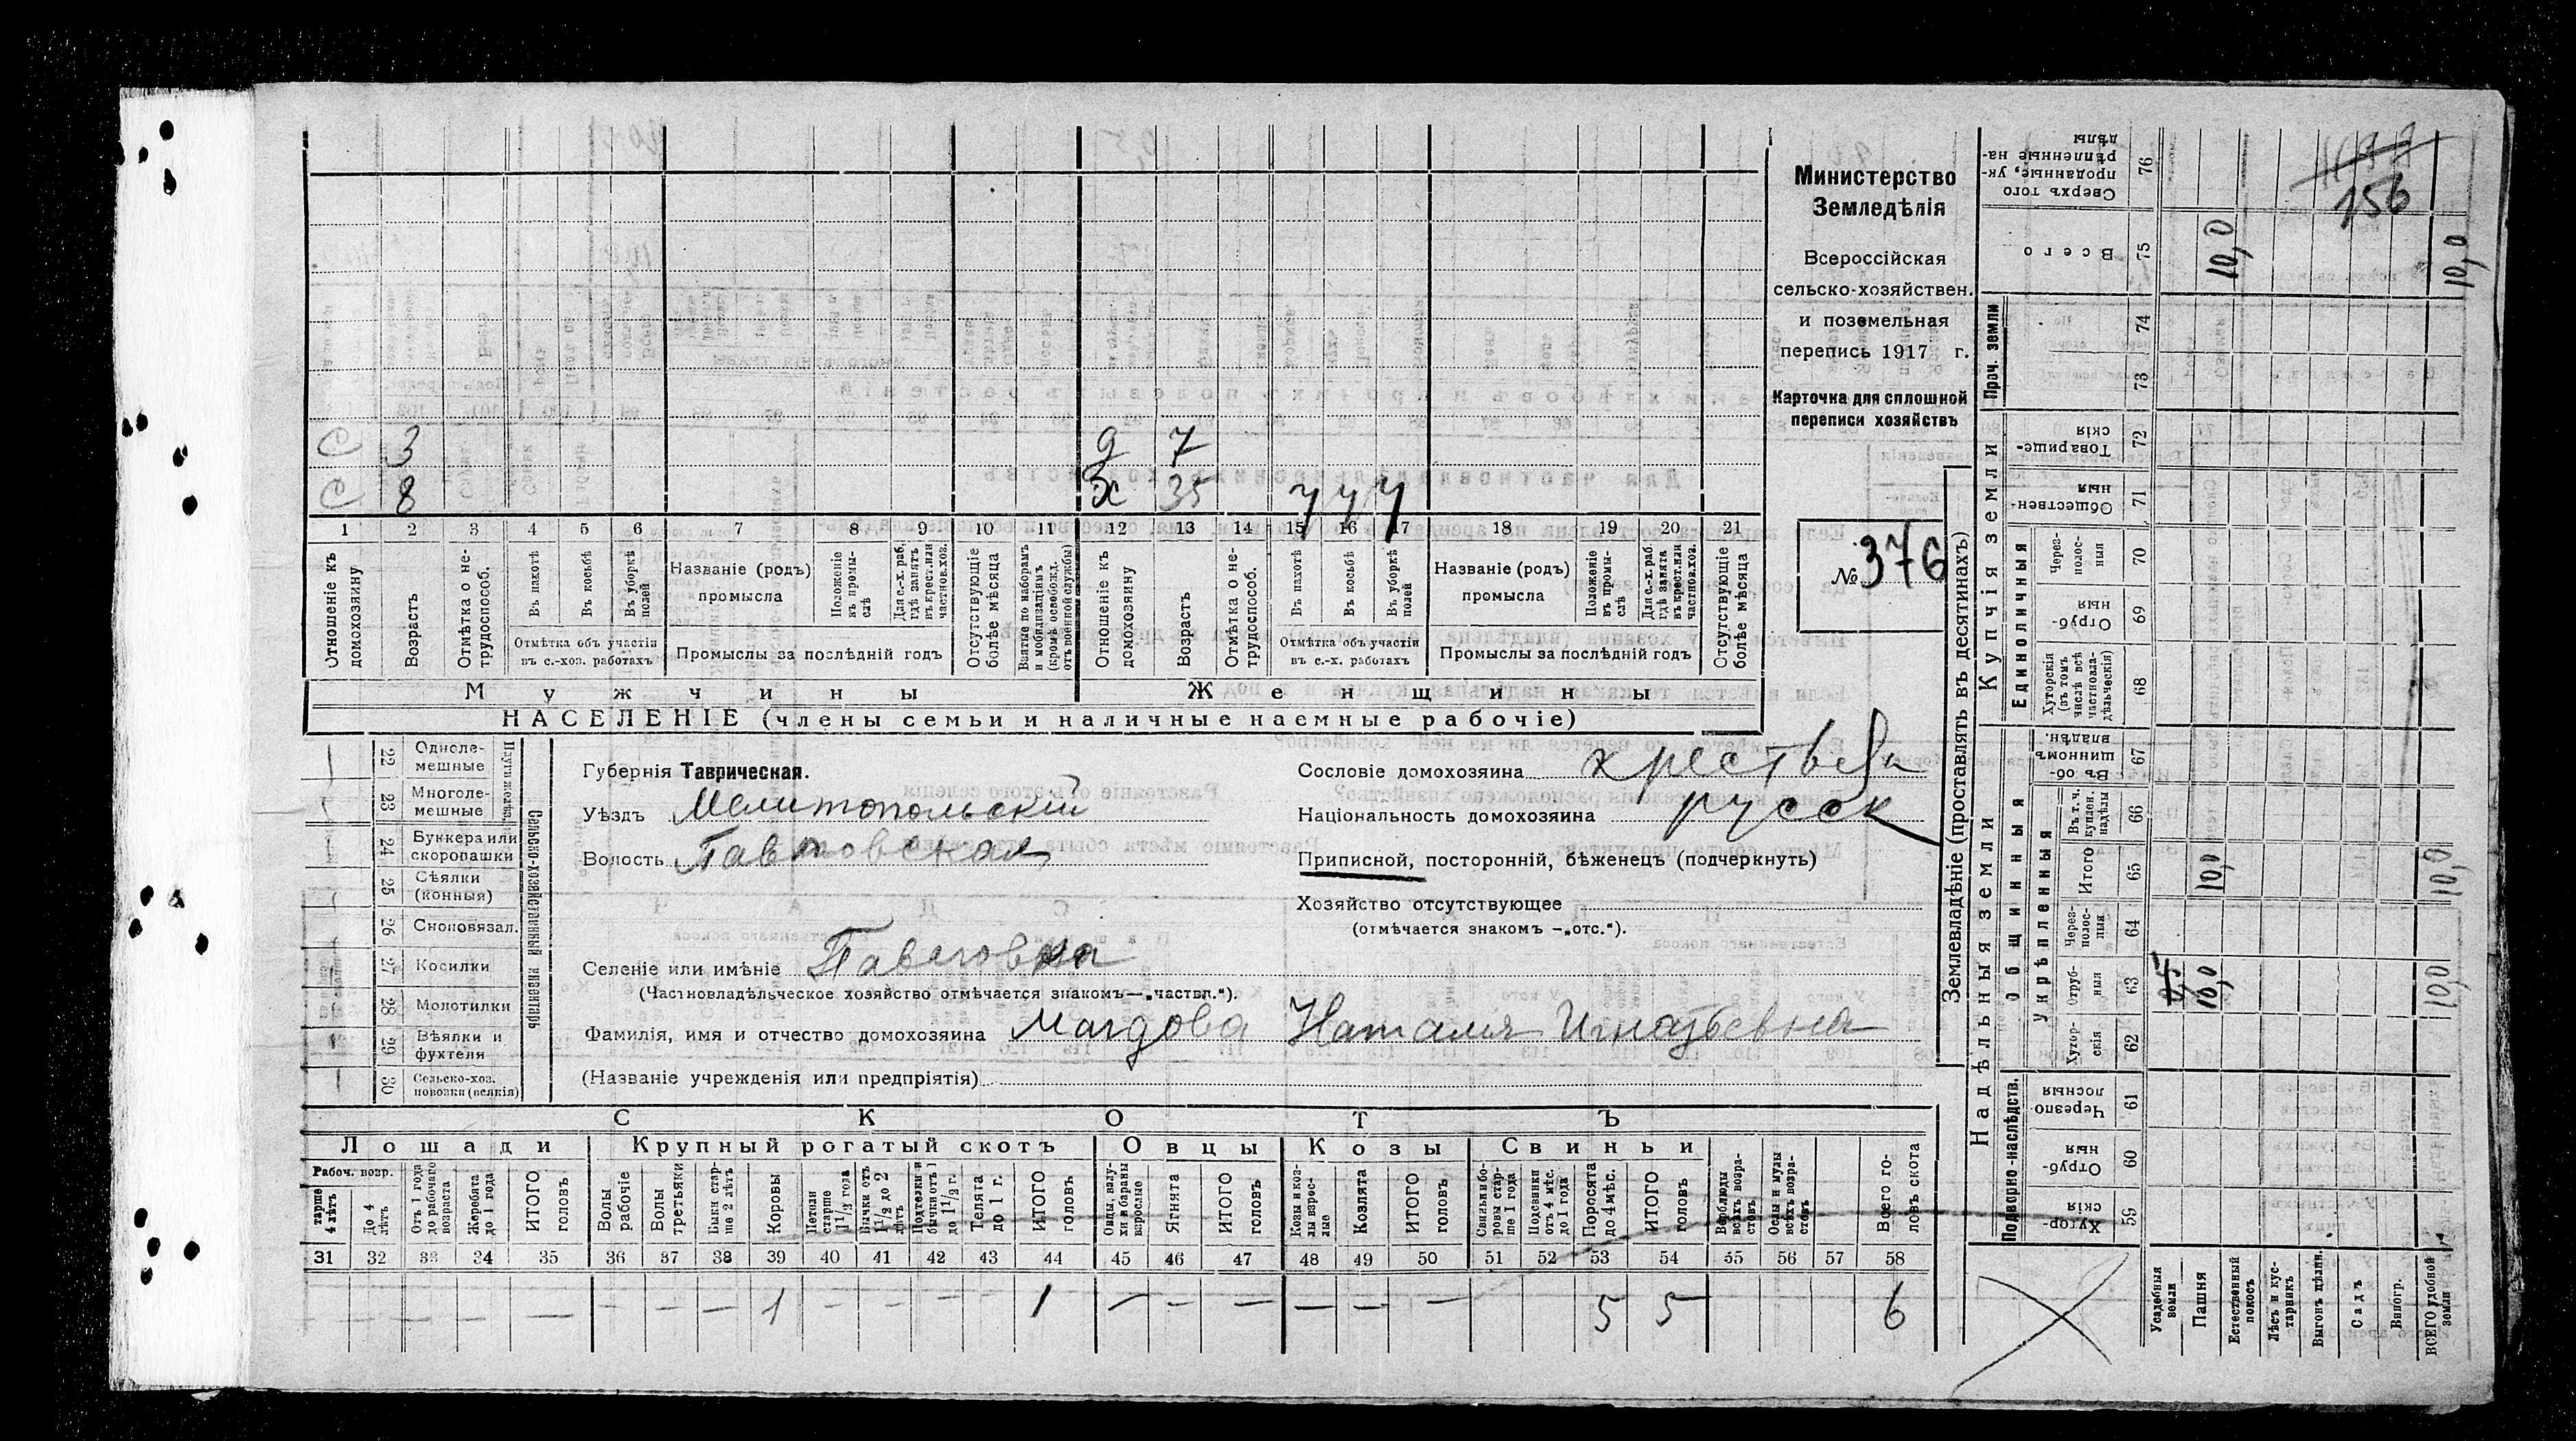 Министерство
Земледѣлія
Всероссійская
сельско-хозяйствен.
и поземельная
перепись 1917 г.
Карточка для сплошной
переписи хозяйствъ
№ 376
156
С 3 д 7
С 8 х 35 у у у
1 2 3 4 5 6 7 8 9 10 11 12 13 14 15 16 17 18 19 20 21
Отношеніе къ домохозяину
Возрасть
Отмѣтка о не-трудоспособ.
Въ пахотѣ
Въ косьбѣ
Въ уборкѣ полей
Отмѣтка объ участіи
въ с.-хоз. работахъ
Названіе (родъ)
промысла
Положеніе въ промы-слѣ
Для с.-х. раб. гдѣ занятъ въ крест. или частнов. хоз.
Промыслы за послѣдній годъ
Отсутствующіе болѣе мѣсяца
Взятые по наборамъ и мобилизаціямъ (кромѣ освобожд. отъ военной службы)
Отношеніе къ домохозяину
Возрастъ
Отмѣтка о не-трудоспособ.
Въ пахотѣ
Въ косьбѣ
Въ уборкѣ полей
Отмѣтка объ участіи
въ с.-х. работахъ
Названіе (родъ)
промысла
Положеніе въ промы-слѣ
Для с.-х. раб. гдѣ занята въ крест. или частнов. хоз.
Промыслы за послѣдній годъ
Отсутствующіе болѣе мѣсяца
Мужчины Женщины
НАСЕЛЕНІЕ (члены семьи и наличные наемные рабочіе)
Сельско-хозяйственный инвентарь
22 Одноле-мешные
23 Многоле-мешные
24 Буккера или скоропашки
25 Сѣялки (конныя)
26 Сноповязал.
27 Косилки
28 Молотилки
29 Вѣялки и фухтеля
30 Сельско-хоз. повозки (всякія)
Губернія Таврическая.
Уѣздъ Мелитопольскій
Волость Павловская
Селеніе или имѣніе Павловка
(Частновладѣльческое хозяйство отмѣчается знакомъ—„частвл.“).
Фамилія, имя и отчество домохозяина Магдова Наталия Игнатьевна
(Названіе учрежденія или предпріятія)
Сословіе домохозяина хрестьян
Національность домохозяина русск
Приписной, посторонній, бѣженецъ (подчеркнуть)
Хозяйство отсутствующее
(отмѣчается знакомъ —„отс.“).
СКОТЪ
Лошади Крупный рогатый скотъ Овцы Козы Свиньи
Рабоч. возр.
тарше 4 лѣтъ
До 4 лѣтъ
Отъ 1 года до рабочаго возраста
Жеребята до 1 года
ИТОГО головъ
Волы рабочіе
Волы третьяки
Быки стар-ше 2 лѣтъ
Коровы
Нетели старше 1½ года
Бычки отъ 1½ до 2 лѣтъ
Подтелки и бычки отъ 1 до 1½ г.
Телята до 1 г.
ИТОГО головъ
Овцы, валу-хи и бараны взрослые
Ягнята
ИТОГО головъ
Козы и коз-лы взрос-лые
Козлята
ИТОГО головъ
Свиньи и бо-ровы стар-ше 1 года
Подсвинки отъ 4 мѣс. до 1 года
Поросята до 4 мѣс.
ИТОГО головъ
Верблюды всѣхъ возра-стовъ
Ослы и мулы всѣхъ возра-стовъ
Всего го-ловъ скота
31 32 33 34 35 36 37 38 39 40 41 42 43 44 45 46 47 48 49 50 51 52 53 54 55 56 57 58
— — — — 1 — — — — 1 — — — — — — 5 5 6
Землевладѣніе (проставлять въ десятинахъ)
Надѣльныя земли Купчія земли
Проч. земли
Подворно-наслѣдств.
Общинныя
Укрѣпленныя
Единоличныя
59 Хутор-скія
60 Отруб-ныя
61 Черезпо-лосныя
62 Хутор-скія
63 Отруб-ныя 10,0 10,0
64 Через-полос-ныя
65 Итого 10,0 10,0
66 Въ т. ч. купчен. надѣлы
67 Въ об-щинномъ владѣн.
68 Хуторскія (въ томъ числѣ всѣ частновла-дѣльческія)
69 Отруб-ныя
70 Через-полос-ныя
71 Обществен-ныя
72 Товарище-скія
73
74
75 Всего 10,0 10,0
76 Сверхъ того проданные, ук-рѣпленные на-дѣлы
Усадебныя земли
Пашня
Естественный покосъ
Лѣсъ и кус-тарникъ
Выгонъ цѣлин.
Садъ
Виногр.
ВСЕГО удобной земли